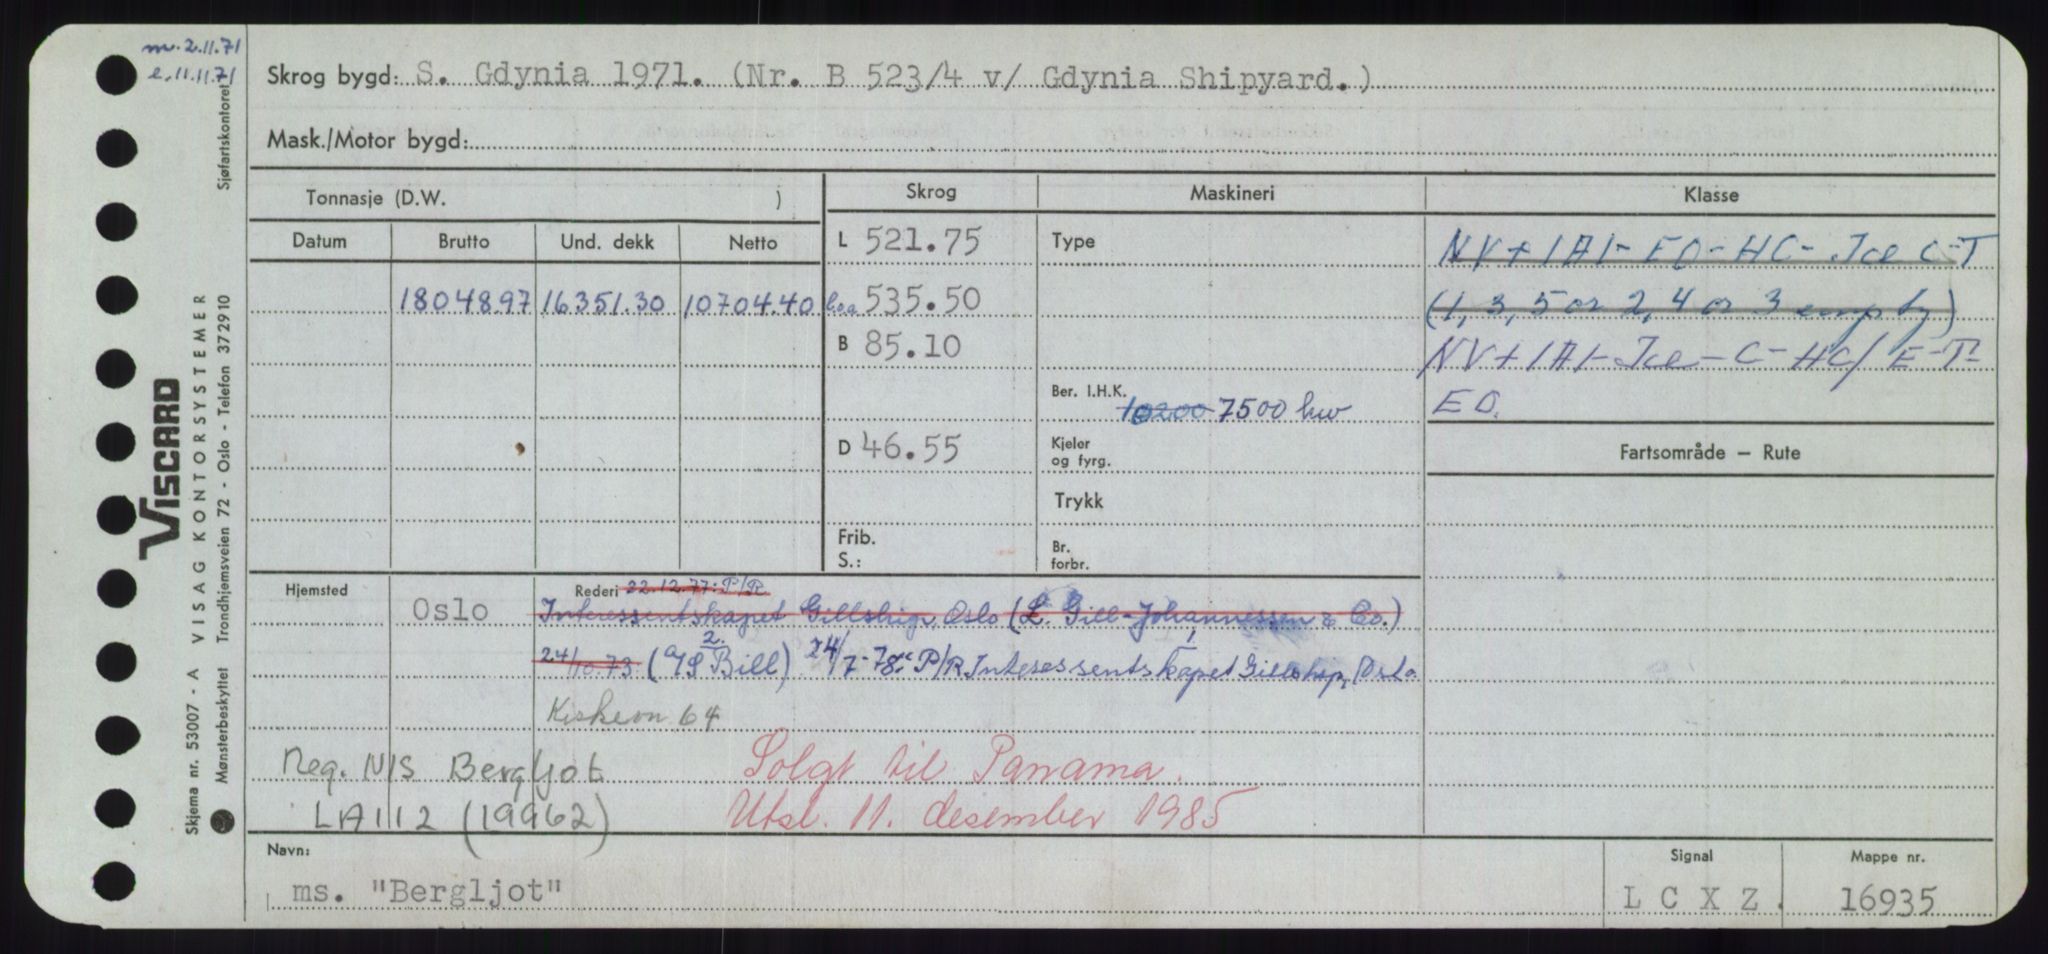 m. 2.11.71
e. 11.11.71
Sjøfartskontoret
Skrog bygd: S. Gdynia 1971. (Nr. B 523/4 v/ Gdynia Shipyard.)
Mask./Motor bygd:
Tonnasje (D.W. )
Skrog
Maskineri
Klasse
Datum Brutto Und. dekk Netto
L 521.75
Type
NV+1A1-EO-HC-Ice C-T
18048.97 16351.30 10704.40
loa 535.50
(1, 3, 5 or 2, 4 or 3 empty)
B 85.10
NV+1A1-Ice-C-HC/E-T-
Ber. I.H.K. 10200 7500 kw
EO.
D 46.55
Kjeler
og fyrg.
Fartsområde – Rute
Trykk
Frib.
S.:
Br.
forbr.
Hjemsted Oslo
Rederi 22.12.77: P/R
Interessentskapet Gillship, Oslo (L. Gill-Johannessen & Co.)
2.
24/10.73 (A/S Bill) 24/7-78: P/R Interessentskapet Gillship, Oslo
64
Reg. NIS Bergljot
Solgt til Panama.
LAII2 (19962)
Utsl. 11. desember 1985
Navn:
ms. "Bergljot"
Signal
L C X Z .
Mappe nr.
16935
VISCARD
Skjema nr. 53007 - A VISAG KONTORSYSTEMER
Mønsterbeskyttet Trondhjemsveien 72 - Oslo - Telefon 372910